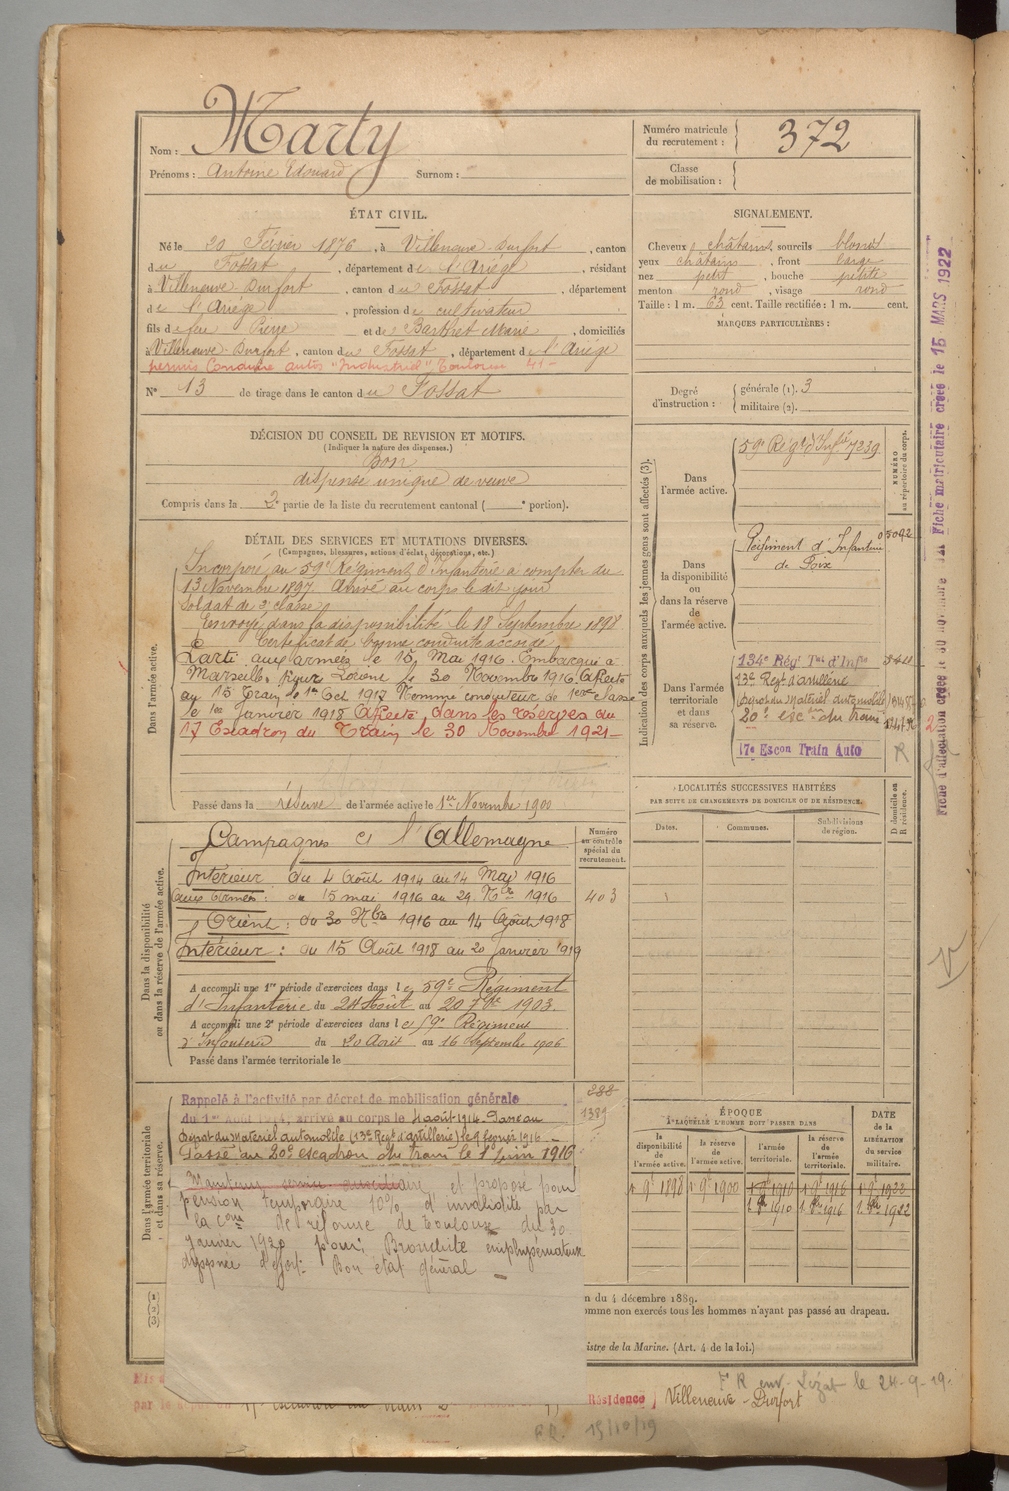 Nom : Marty
Prénoms : Antoine Edouard Surnom :
Numéro matricule du recrutement : 372
Classe de mobilisation :
ÉTAT CIVIL.
Né le 20 Février 1876, à Villeneuve-Durfort, canton
du Fossat, département de l'Ariège, résidant
à Villeneuve-Durfort, canton du Fossat, département
de l'Ariège, profession de cultivateur
fils de feu Pierre et de Marie, domiciliés
à Villeneuve-Durfort, canton du Fossat, département de l'Ariège
permis Conduire autos "Industriel" Toulouse
N° 13 de tirage dans le canton du Fossat
SIGNALEMENT.
Cheveux châtains, sourcils blonds
yeux châtains, front large
nez petit, bouche petite
menton rond, visage rond
Taille : 1 m. 63 cent. Taille rectifiée : 1 m. cent.
MARQUES PARTICULIÈRES :
Degré d'instruction : générale (1). 3
militaire (2).
DÉCISION DU CONSEIL DE REVISION ET MOTIFS.
(Indiquer la nature des dispenses.)
Bon
dispensé unique de veuve
Compris dans la 2e partie de la liste du recrutement cantonal ( e portion).
DÉTAIL DES SERVICES ET MUTATIONS DIVERSES.
(Campagnes, blessures, actions d'éclat, décorations, etc.)
Dans l'armée active.
Incorporé au 59e Régiment d'Infanterie à compter du
13 Novembre 1897. Arrivé au corps le dit jour
Soldat de 2e classe
Envoyé dans la disponibilité le 18 Septembre 1898
Certificat de bonne conduite accordé
Parti aux armées le 15 Mai 1916. Embarqué à
Marseille pour l'Orient le 30 Novembre 1916. Affecté
au 15 Train le 1er Oct 1917 Nommé conducteur de 1ere classe
le 1er Janvier 1918 Affecté dans les réserves du
17 Escadron du Train le 30 Novembre 1921
Passé dans la réserve de l'armée active le 1er Novembre 1900
Indication des corps auxquels les jeunes gens sont affectés (3).
NUMÉRO au répertoire du corps.
Dans l'armée active.
59e Régt d'Infie 7239
Dans la disponibilité ou dans la réserve de l'armée active.
Régiment d'Infanterie 05092
de Foix
Dans l'armée territoriale et dans sa réserve.
134e Régt Tal d'Infie
13e Regt d'artillerie
Dépot du Matériel automobile
20e escon du train
17e Escon Train Auto R
Fiche matriculaire créée le 15 MARS 1922
LOCALITÉS SUCCESSIVES HABITÉES
PAR SUITE DE CHANGEMENTS DE DOMICILE OU DE RÉSIDENCE.
Dates. Communes. Subdivisions de région. D domicile ou R résidence.
Dans la disponibilité ou dans la réserve de l'armée active.
Numéro au contrôle spécial du recrutement.
403
Campagnes ct l'Allemagne
Intérieur du 4 Août 1914 au 14 Mai 1916
Aux Armées : du 15 mai 1916 au 29 Nbre 1916
Orient : du 30 Nbre 1916 au 14 Août 1918
Intérieur : du 15 Août 1918 au 20 janvier 1919
A accompli une 1re période d'exercices dans le 59e Régiment
d'Infanterie du 24 Août au 20 7bre 1903.
A accompli une 2e période d'exercices dans le 59e Régiment
d'Infanterie du 20 Août au 16 Septembre 1906
Passé dans l'armée territoriale le
Dans l'armée territoriale et dans sa réserve.
282
1389
Rappelé à l'activité par décret de mobilisation générale
du 1er Août 1914, arrivé au corps le 4 août 1914. Passé au
Dépot du Matériel automobile (13e Regt d'artillerie) le 9 février 1916
Passé au 20e escadron du train le 1er juin 1916
Maintenu service auxiliaire et proposé pour
pension temporaire 10% d'invalidité par
la con de réforme de Toulouse du 30
Janvier 1920 pour; Bronchite emphysémateuse
dyspnée d'effort. Bon état général
ÉPOQUE
À LAQUELLE L'HOMME DOIT PASSER DANS
la disponibilité de l'armée active. la réserve de l'armée active. l'armée territoriale. la réserve de l'armée territoriale.
DATE de la LIBÉRATION du service militaire.
1er 9bre 1898 1er 9bre 1900 1er 9bre 1910 1er 9bre 1916 1er 9bre 1922
n du 4 décembre 1889.
omme non exercés tous les hommes n'ayant pas passé au drapeau.
istre de la Marine. (Art. 4 de la loi.)
le 24-9-19.
Résidence Villeneuve-Durfort
15/10/19